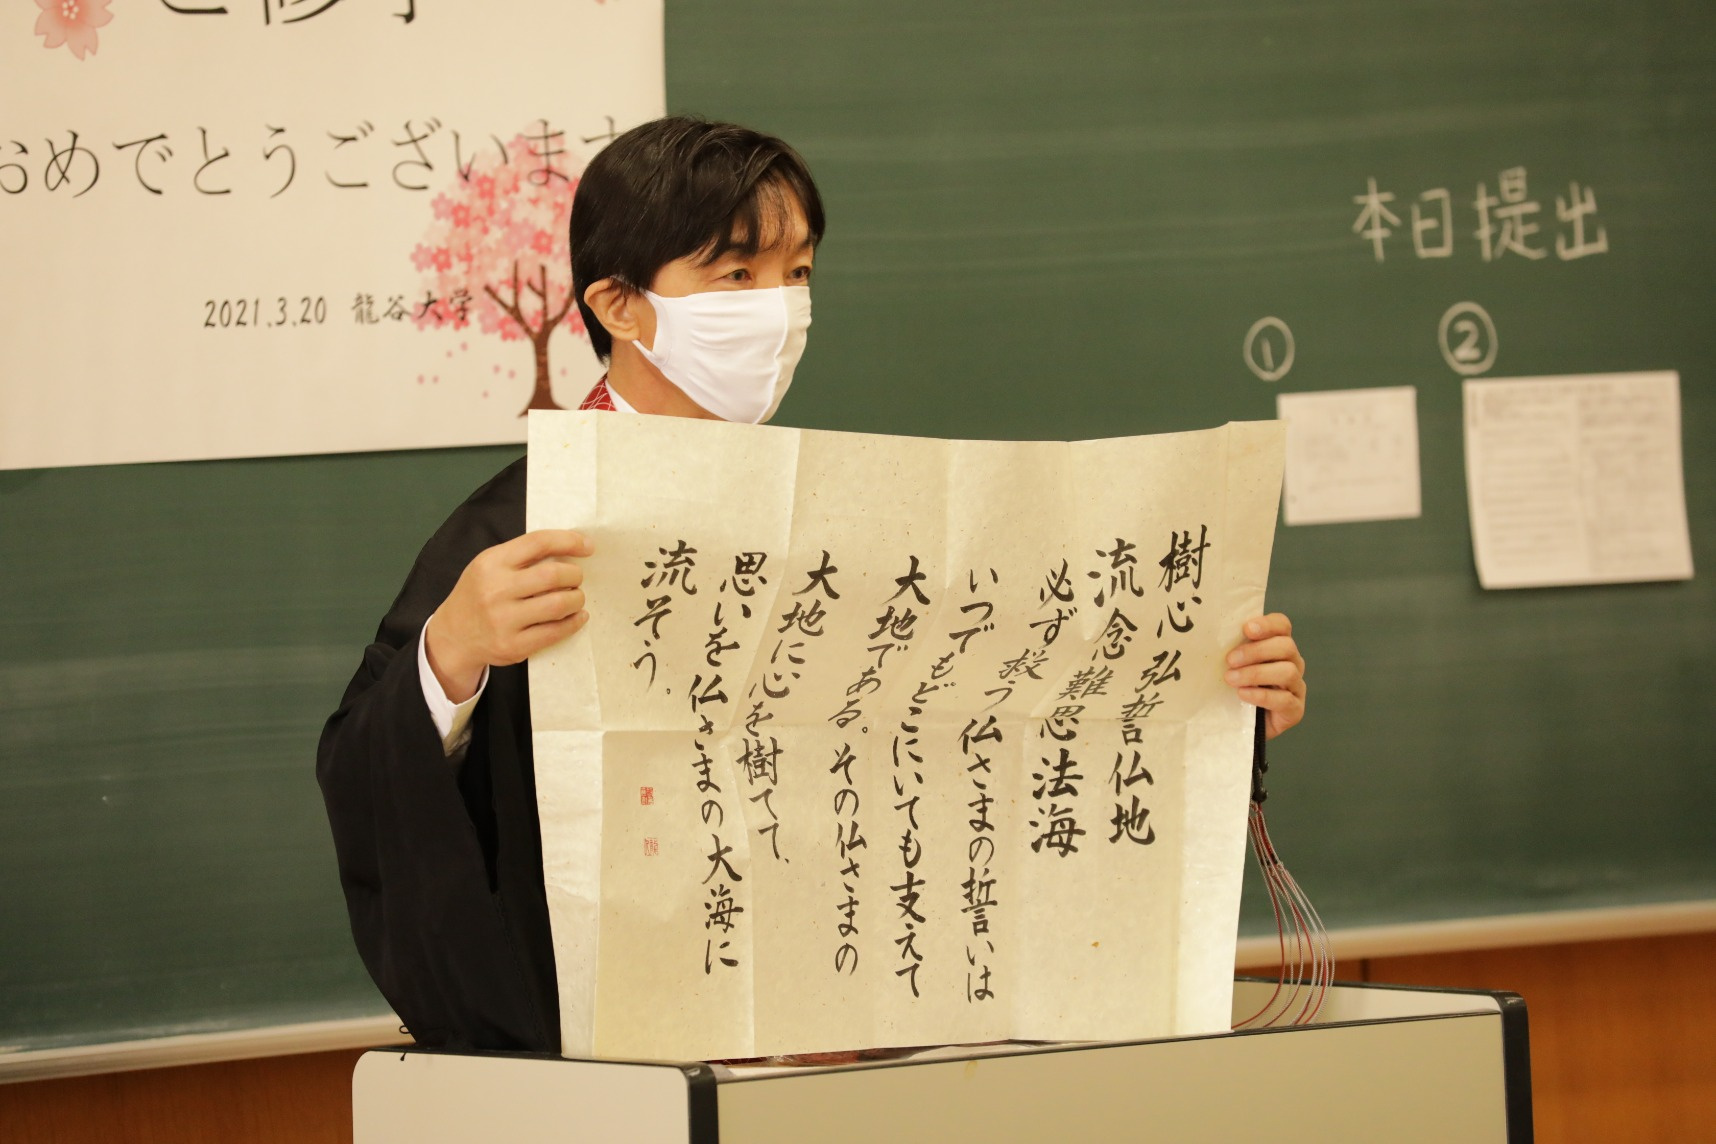 ご修了
おめでとうございます
2021.3.20 龍谷大学
本日提出
① ②
樹心弘誓仏地
流念難思法海
必ず救う仏さまの誓いは
いつでもどこにいても支えて
大地である。その仏さまの
大地に心を樹てて、
思いを仏さまの大海に
流そう。